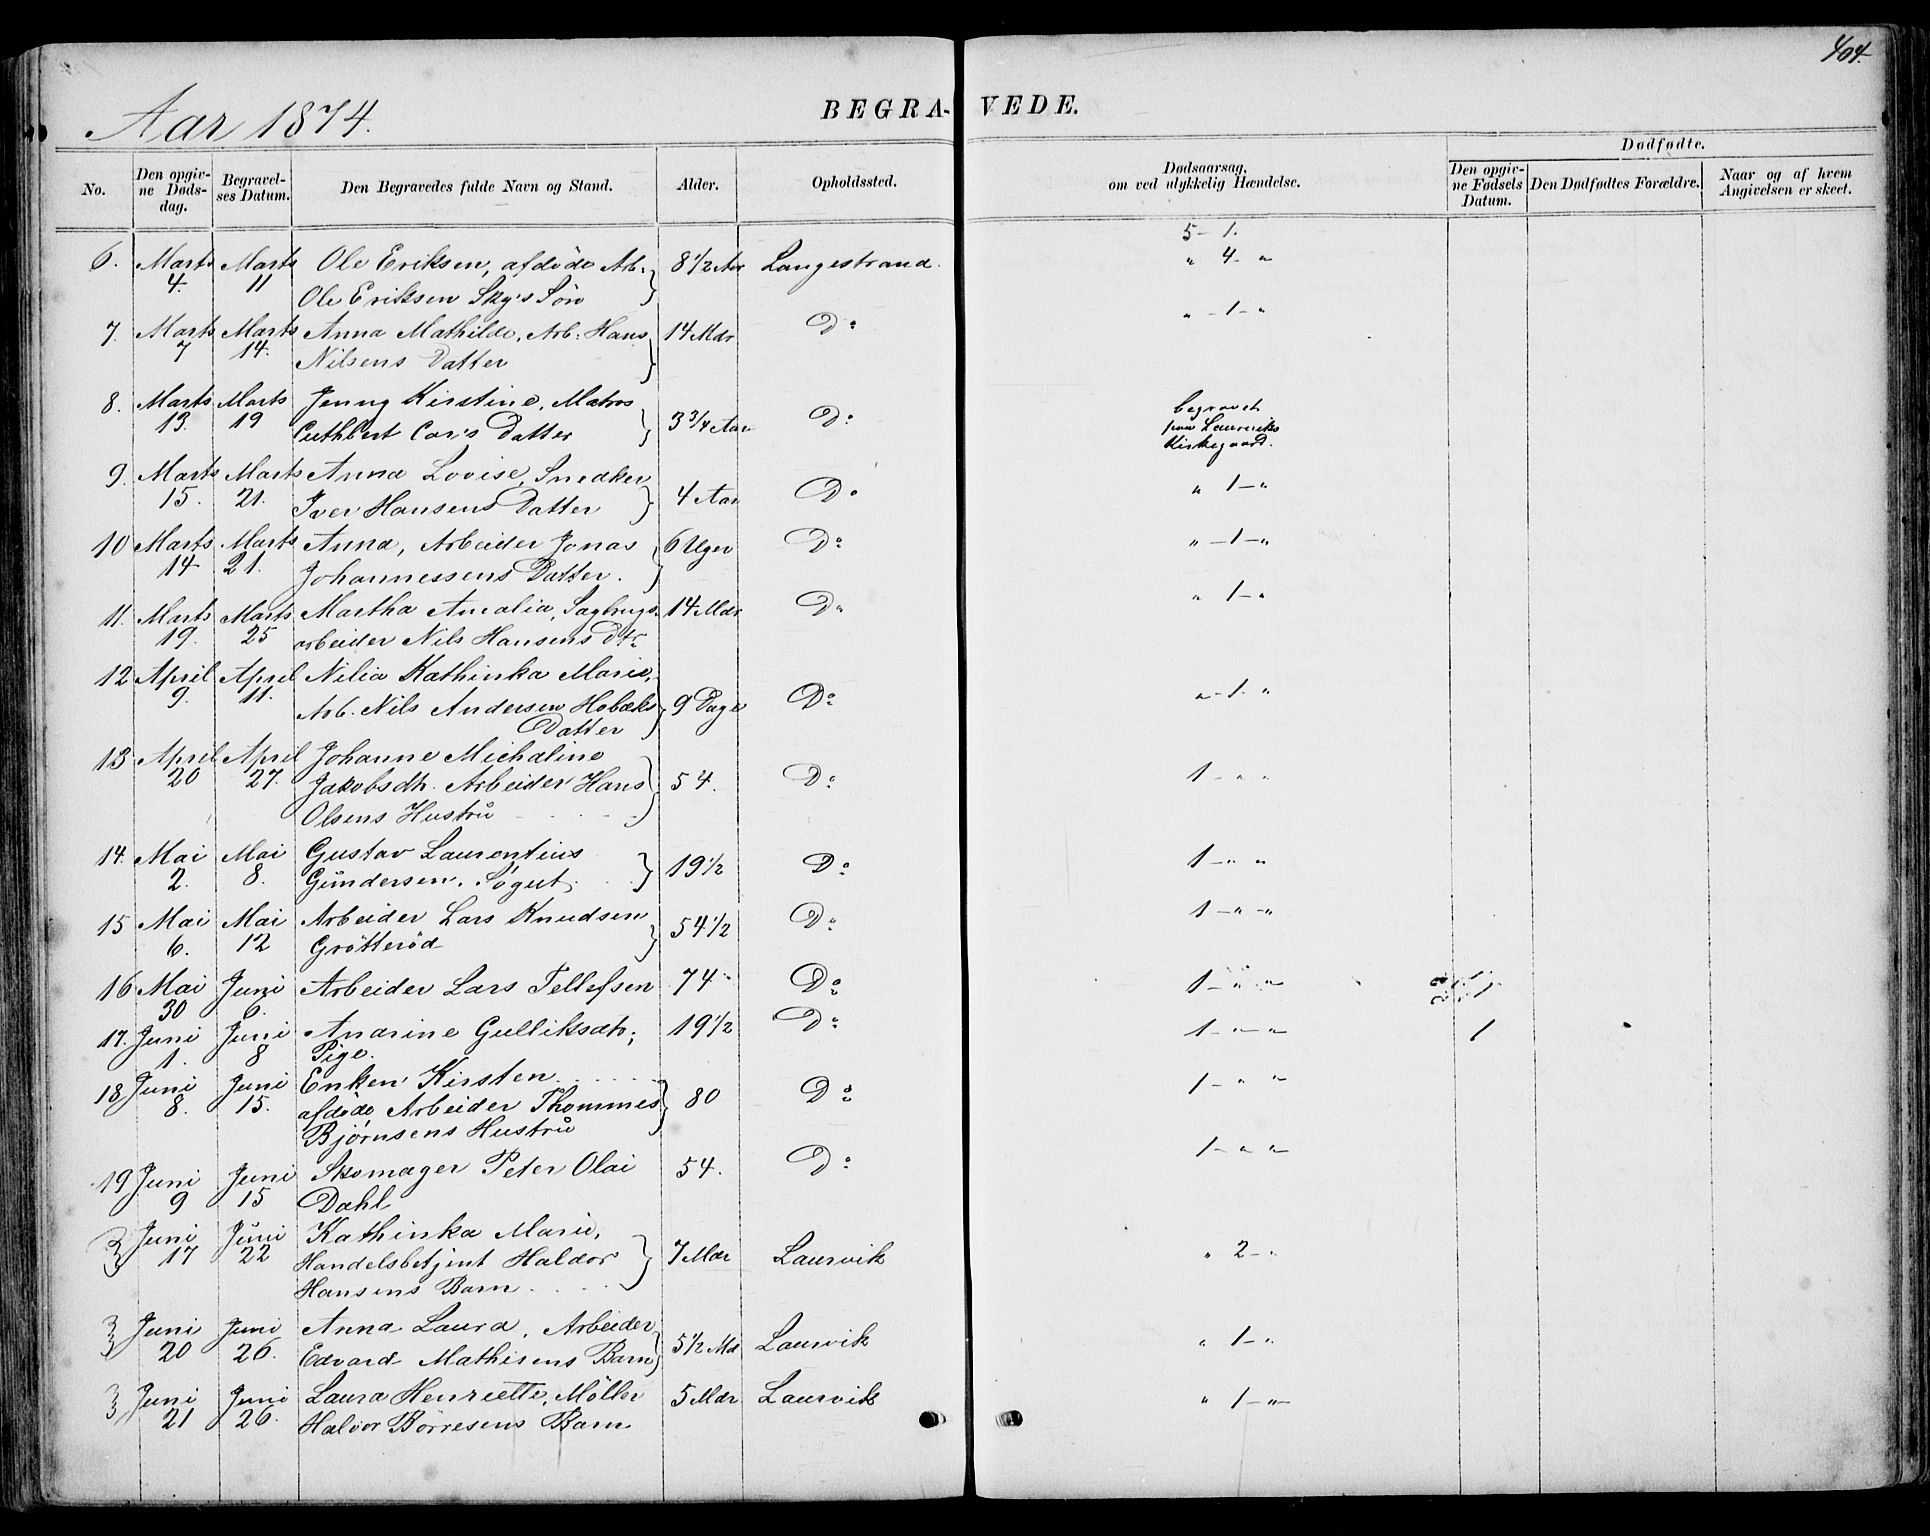 404.
Aar 1874.
BEGRA- VEDE.
No.
Den opgivne Dødsdag.
Begravelses Datum.
Den Begravedes fulde Navn og Stand.
Alder.
Opholdssted.
Dødsaarsag,
om ved ulykkelig Hændelse.
Dødfødte.
Den opgivne Fødsels Datum.
Den Dødfødtes Forældre.
Naar og af hvem Angivelsen er skeet.
5 - 1.
6. Marts Marts Ole Eriksen, afdöde Arb. 8 1/2 Aar Langestrand. " 4 - "
4. 11 Ole Eriksen Sky's Sön
7. Marts Marts Anna Mathilde, Arb. Hans 14 Mdr Do " - 1 - "
7 14. Nilsens Datter
8. Marts Marts Jenny Kirstine, Matros 3 3/4 Aar Do begravet
13. 19 Cuthbert Cor's Datter paa Laurviks
Kirkegaard.
9. Marts Marts Anna Lovise, Snedker 4 Aar Do " 1 - "
15. 21. Iver Hansens Datter
10 Marts Marts Anna, Arbeider Jonas 6 Uger Do " - 1 - "
14 21. Johannessens Datter.
11. Marts Marts Martha Amalia, Sagbrugs- 14 Mdr Do " 1 - "
19. 25 arbeider Nils Hansens Dtr
12 April April Nilia Kathinka Marie,
9. 11. Arb. Nils Andersen Hobæks 9 Dage Do " - 1. "
Datter
13 April April Johanne Michaline
20 27. Jakobsdtr. Arbeider Hans 54. Do 1 - " "
Olsens Hustrü
14. Mai Mai Gustav Laurentius 19 1/2 Do 1 - " "
2. 8. Gündersen. Søgut
15 Mai Mai Arbeider Lars Knudsen 54 1/2 Do 1 - " - "
6. 12 Gröttеröd
16 Mai Juni Arbeider Lars Tellefsen 74 Do 1 - " "
30 6.
17. Juni Juni Anarine Gulliksdtr; 19 1/2 Do 1 - " - " 1
1. 8 Pige.
18 Juni Juni Enken Kirsten
8. 15. afdöde Arbeider Thommes 80 Do 1 - " "
Bjørnsens Hustrü
19 Juni Juni Skomager Peter Olai 54. Do 1 - " "
9 15 Dahl
Juni Juni Kathinka Marie,
17 22 Handelsbetjent Haldor 7 Mdr Laurvik " 2 - "
Hansens Barn
Juni Juni Anna Laura, Arbeider
20 26. Edvard Mathisens Barn 5 1/2 Md Laurvik " 1 - "
Juni Juni Laura Henriette, Möller 5 Mdr Laurvik " 1 - "
21 26. Halvor Börresens Barn